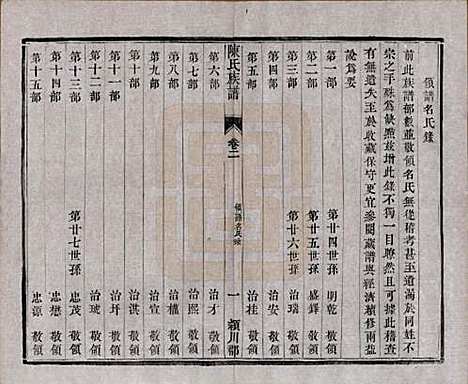 領譜名氏錄
前此族譜部數並敬領名氏無從稽考甚至遺漏於同姓不
宗之手殊為缺點茲增此錄不獨一目瞭然且可據此稽查
有無遺失至於收藏保守更宜參閱藏譜與經濟積修兩益
說為要
第一部 第廿四世孫 明乾 敬領
第二部 第廿五世孫 盛鐸 敬領
第三部 第廿六世孫 治瑞 敬領
第四部 治安 敬領
第五部 治桂 敬領
陳氏族譜 卷二 領譜名氏錄 一 潁川郡
第六部 治才 敬領
第七部 治熙 敬領
第八部 治權 敬領
第九部 治宣 敬領
第十部 治淇 敬領
第十一部 治圻 敬領
第十二部 治琥 敬領
第十三部 第廿七世孫 忠茂 敬領
第十四部 忠懋 敬領
第十五部 忠源 敬領